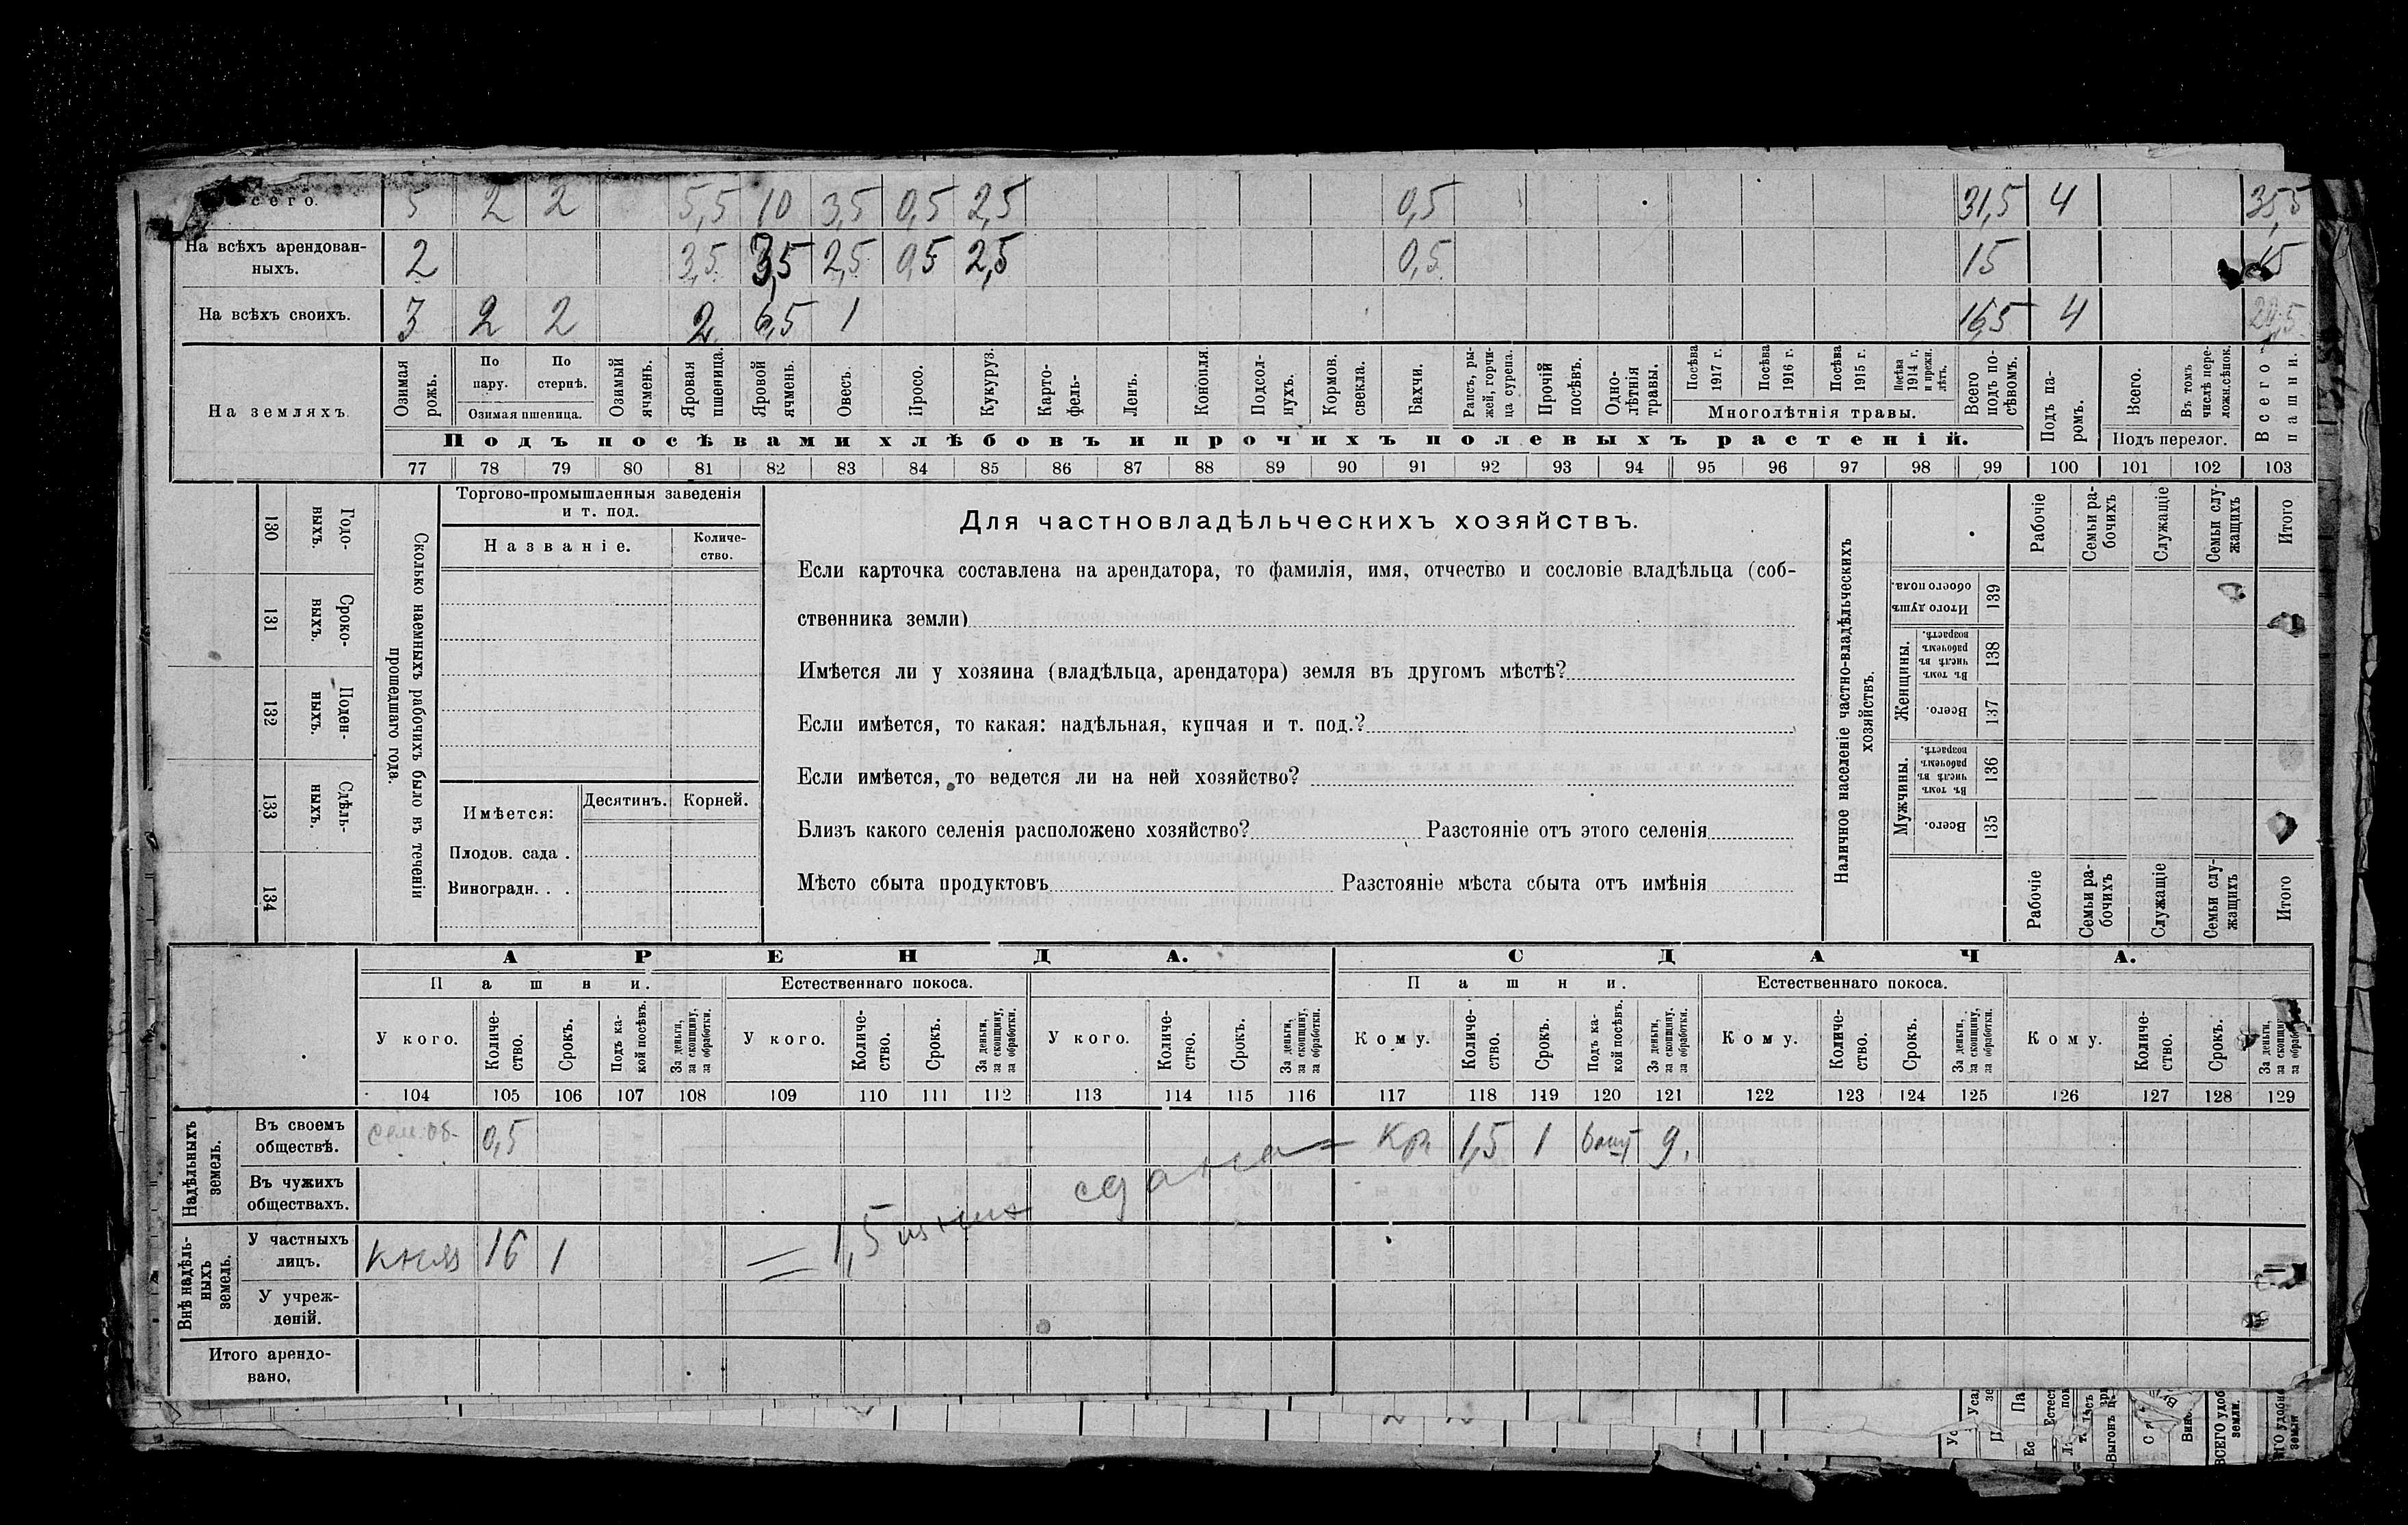 сего. 5 2 2 5,5 10 3,5 0,5 2,5 0,5 31,5 4 35,5
На всѣхъ арендован-
ныхъ. 2 3,5 3,5 2,5 0,5 2,5 0,5 15 15
На всѣхъ своихъ. 3 2 2 2 6,5 1 16,5 4
На земляхъ.
Озимая рожь.
По пару.
По стернѣ.
Озимая пшеница.
Озимый ячмень.
Яровая пшеница.
Яровой ячмень.
Овесъ.
Просо.
Кукуруз.
Карто-
фель-
Ленъ.
Конопля.
Подсол-
нухъ.
Кормов.
свекла.
Бахчи.
Рапсъ, ры-
жей, горчи-
ца сурепа.
Прочій
посѣвъ.
Одно-
лѣтнія
травы.
Посѣва
1917 г.
Посѣва
1916 г.
Посѣва
1915 г.
Посѣва
1914 г.
и прежн.
лѣтъ.
Многолѣтнія травы.
Всего
подъ по-
сѣвомъ.
Подъ па-
ромъ.
Всего.
Въ томъ
числѣ пере-
ложн.сѣнок.
Подъ перелог.
Всего
пашни.
Подъ посѣвами хлѣбовъ и прочихъ полевыхъ растеній.
77 78 79 80 81 82 83 84 85 86 87 88 89 90 91 92 93 94 95 96 97 98 99 100 101 102 103
130 Годо-
ныхъ.
131 Сроко-
ныхъ.
132 Поден-
ныхъ.
133 Сдѣль-
ныхъ.
134
Сколько наемныхъ рабочихъ было въ теченіи
прошедшаго года.
Торгово-промышленныя заведенія
и т. под.
Названіе.
Количе-
ство.
Имѣется:
Десятинъ.
Корней.
Плодов. сада .
Виноградн. . .
Для частновладѣльческихъ хозяйствъ.
Если карточка составлена на арендатора, то фамилія, имя, отчество и сословіе владѣльца (соб-
ственника земли)
Имѣется ли у хозяина (владѣльца, арендатора) земля въ другомъ мѣстѣ?
Если имѣется, то какая: надѣльная, купчая и т. под.?
Если имѣется, то ведется ли на ней хозяйство?
Близъ какого селенія расположено хозяйство? Разстояніе отъ этого селенія
Мѣсто сбыта продуктовъ Разстояніе мѣста сбыта отъ имѣнія
Наличное населеніе частно-владѣльческихъ
хозяйствъ.
Рабочіе
Семьи ра-
бочихъ
Служащіе
Семьи слу-
жащихъ
Итого
Итого душъ
обоего пола.
139
Женщины.
Въ томъ
числѣ въ
рабочемъ
возрастѣ.
138
Всего.
137
Мужчины.
Въ томъ
числѣ въ
рабочемъ
возрастѣ.
136
Всего.
135
Рабочіе
Семьи ра-
бочихъ
Служащіе
Семьи слу-
жащихъ
Итого
АРЕНДА.
СДАЧА.
Пашни.
Естественнаго покоса.
Пашни.
Естественнаго покоса.
У кого.
Количе-
ство.
Срокъ.
Подъ ка-
кой посѣвъ.
За деньги,
за скопщину,
за обработки.
У кого.
Количе-
ство.
Срокъ.
За деньги,
за скопщину,
за обработки.
У кого.
Количе-
ство.
Срокъ.
За деньги,
за скопщину,
за обработки.
Кому.
Количе-
ство.
Срокъ.
Подъ ка-
кой посѣвъ.
За деньги,
за скопщину,
за обработки.
Кому.
Количе-
ство.
Срокъ.
За деньги,
за скопщину,
за обработки.
Кому.
Количе-
ство.
Срокъ.
За деньги,
за скопщин
за обработ
104 105 106 107 108 109 110 111 112 113 114 115 116 117 118 119 120 121 122 123 124 125 126 127 128 129
Надѣльныхъ
земель.
Въ своемъ
обществѣ. 0,5 Кр 1,5 1 9.
Въ чужихъ
обществахъ.
Внѣ надѣль-
ныхъ
земель.
У частныхъ
лицъ. 16 1 = 1,5 из них сдана
У учреж-
деній.
Итого арендо-
вано.